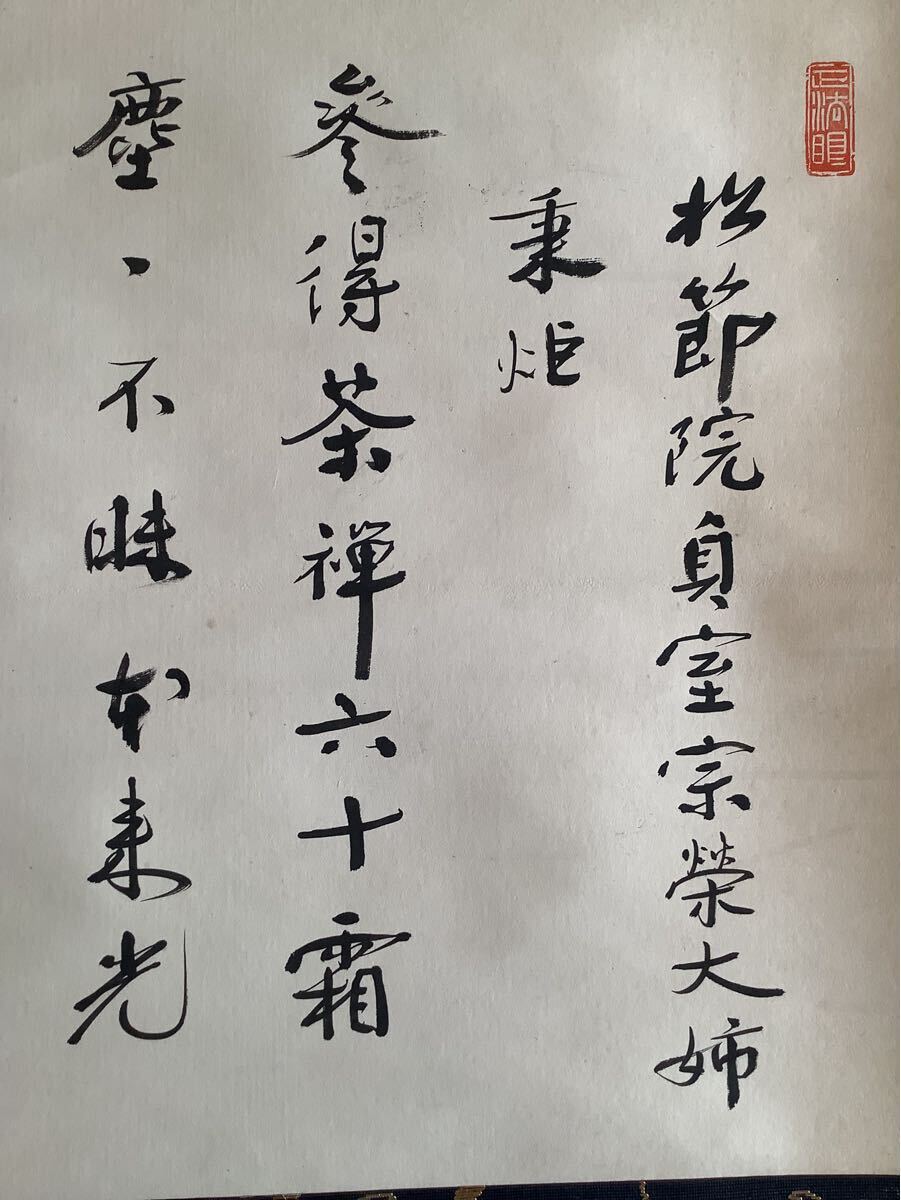 正法眼
松節院貞室宗榮大姉
秉炬
參得茶禪六十霜
塵、不昧本来光